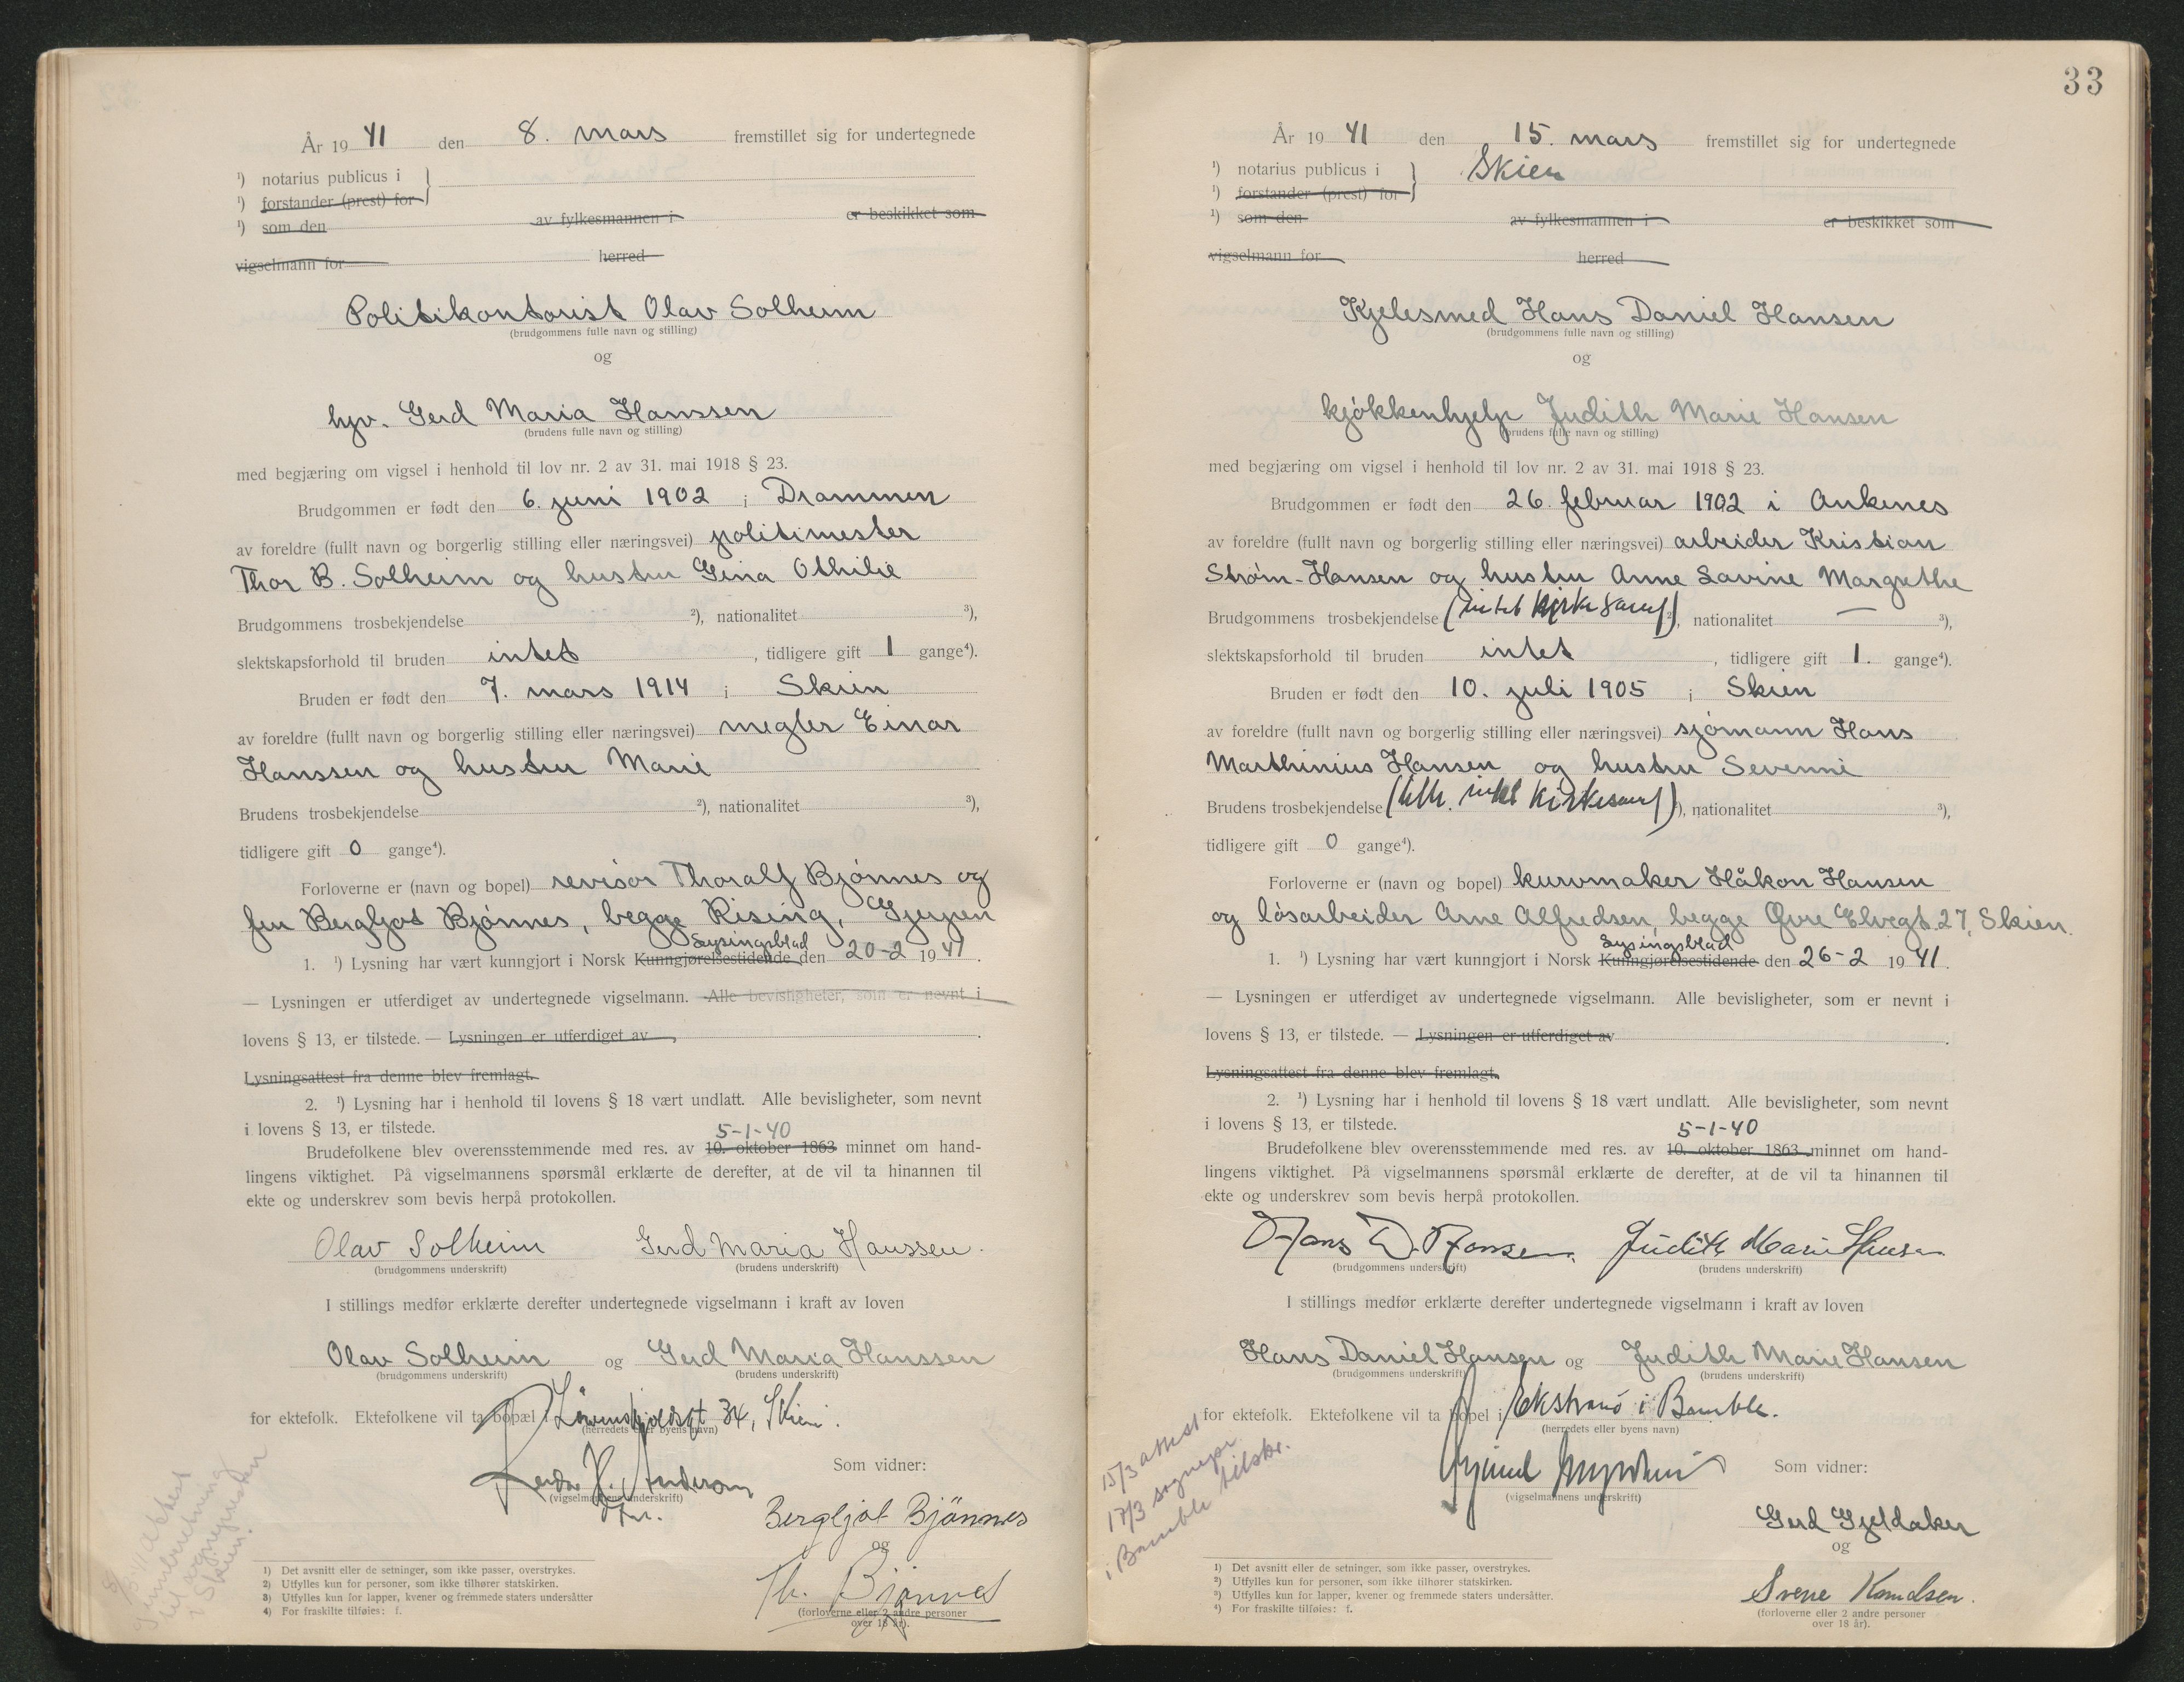 År 19 41 den 8. mars fremstillet sig for undertegnede
¹) notarius publicus i
¹) forstander (prest) for
¹) som den av fylkesmannen i er beskikket som
vigselmann for herred
Politikontorist Olav Solheim
(brudgommens fulle navn og stilling)
og
hjv. Gerd Maria Hanssen
(brudens fulle navn og stilling)
med begjæring om vigsel i henhold til lov nr. 2 av 31. mai 1918 § 23.
Brudgommen er født den 6. juni 1902 i Drammen
av foreldre (fullt navn og borgerlig stilling eller næringsvei) politimester
Thor B. Solheim og hustru Gina Othilie
Brudgommens trosbekjendelse ²), nationalitet ³),
slektskapsforhold til bruden intet, tidligere gift 1 gange⁴).
Bruden er født den 7. mars 1914 i Skien
av foreldre (fullt navn og borgerlig stilling eller næringsvei) megler Einar
Hanssen og hustru Marie
Brudens trosbekjendelse ²), nationalitet ³),
tidligere gift 0 gange⁴).
Forloverne er (navn og bopel) revisor Thoralf Bjønnes og
fru Bergljot Bjønnes, begge Rising, Gjerpen
Lysingsblad
1. ¹) Lysning har vært kunngjort i Norsk Kunngjørelsestidende den 20-2 19 41.
— Lysningen er utferdiget av undertegnede vigselmann. Alle bevisligheter, som er nevnt i
lovens § 13, er tilstede. — Lysningen er utferdiget av
Lysningsattest fra denne blev fremlagt.
2. ¹) Lysning har i henhold til lovens § 18 vært undlatt. Alle bevisligheter, som nevnt
i lovens § 13, er tilstede.
5-1-40
Brudefolkene blev overensstemmende med res. av 10. oktober 1863 minnet om hand-
lingens viktighet. På vigselmannens spørsmål erklærte de derefter, at de vil ta hinannen til
ekte og underskrev som bevis herpå protokollen.
Olav Solheim Gerd Maria Hanssen.
(brudgommens underskrift) (brudens underskrift)
I stillings medfør erklærte derefter undertegnede vigselmann i kraft av loven
Olav Solheim og Gerd Maria Hanssen
(brudgommens underskrift) (brudens underskrift)
for ektefolk. Ektefolkene vil ta bopæl i Løvenskjoldsgt 34, Skien.
(herredets eller byens navn)
Som vidner:
(vigselmannens underskrift)
Bergljot Bjönnes
og
Th. Bjønnes
(forloverne eller 2 andre personer
over 18 år).
¹) Det avsnitt eller de setninger, som ikke passer, overstrykes.
²) Utfylles kun for personer, som ikke tilhører statskirken.
³) Utfylles kun for lapper, kvener og fremmede staters undersåtter
⁴) For fraskilte tilføies: f.
33
År 19 41 den 15. mars fremstillet sig for undertegnede
¹) notarius publicus i Skien
¹) forstander (prest) for
¹) som den av fylkesmannen i er beskikket som
vigselmann for herred
Kjelesmed Hans Daniel Hansen
(brudgommens fulle navn og stilling)
og
kjøkkenhjelp Judith Marie Hansen
(brudens fulle navn og stilling)
med begjæring om vigsel i henhold til lov nr. 2 av 31. mai 1918 § 23.
Brudgommen er født den 26. februar 1902 i Ankenes
av foreldre (fullt navn og borgerlig stilling eller næringsvei) arbeider Kristian
Strøm-Hansen og hustru Anne Lavine Margrethe
Brudgommens trosbekjendelse (intet kirkesamf) ²), nationalitet — ³),
slektskapsforhold til bruden intet, tidligere gift 1. gange⁴).
Bruden er født den 10. juli 1905 i Skien
av foreldre (fullt navn og borgerlig stilling eller næringsvei) sjømann Hans
Marthinius Hansen og hustru Sevenni
Brudens trosbekjendelse (tilh. intet kirkesamf) ²), nationalitet ³),
tidligere gift 0 gange⁴).
Forloverne er (navn og bopel) kurvmaker Håkon Hansen
og løsarbeider Arne Alfredsen, begge Øvre Elvegt. 27, Skien.
Lysingsblad
1. ¹) Lysning har vært kunngjort i Norsk Kunngjørelsestidende den 26-2 19 41.
— Lysningen er utferdiget av undertegnede vigselmann. Alle bevisligheter, som er nevnt i
lovens § 13, er tilstede. — Lysningen er utferdiget av
Lysningsattest fra denne blev fremlagt.
2. ¹) Lysning har i henhold til lovens § 18 vært undlatt. Alle bevisligheter, som nevnt
i lovens § 13, er tilstede.
5-1-40
Brudefolkene blev overensstemmende med res. av 10. oktober 1863 minnet om hand-
lingens viktighet. På vigselmannens spørsmål erklærte de derefter, at de vil ta hinannen til
ekte og underskrev som bevis herpå protokollen.
Hans D. Hansen. Judith Marie Hansen
(brudgommens underskrift) (brudens underskrift)
I stillings medfør erklærte derefter undertegnede vigselmann i kraft av loven
Hans Daniel Hansen og Judith Marie Hansen
(brudgommens underskrift) (brudens underskrift)
for ektefolk. Ektefolkene vil ta bopel i Ekstrand i Bamble.
(herredets eller byens navn)
Som vidner:
(vigselmannens underskrift)
Gerd Gjeldaker
og
Svene Knudsen.
(forloverne eller 2 andre personer
over 18 år).
15/3 attest
17/3 sognepr.
i Bamble tilskr.
¹) Det avsnitt eller de setninger, som ikke passer, overstrykes.
²) Utfylles kun for personer, som ikke tilhører statskirken.
³) Utfylles kun for lapper, kvener og fremmede staters undersåtter.
⁴) For fraskilte tilføies: f.